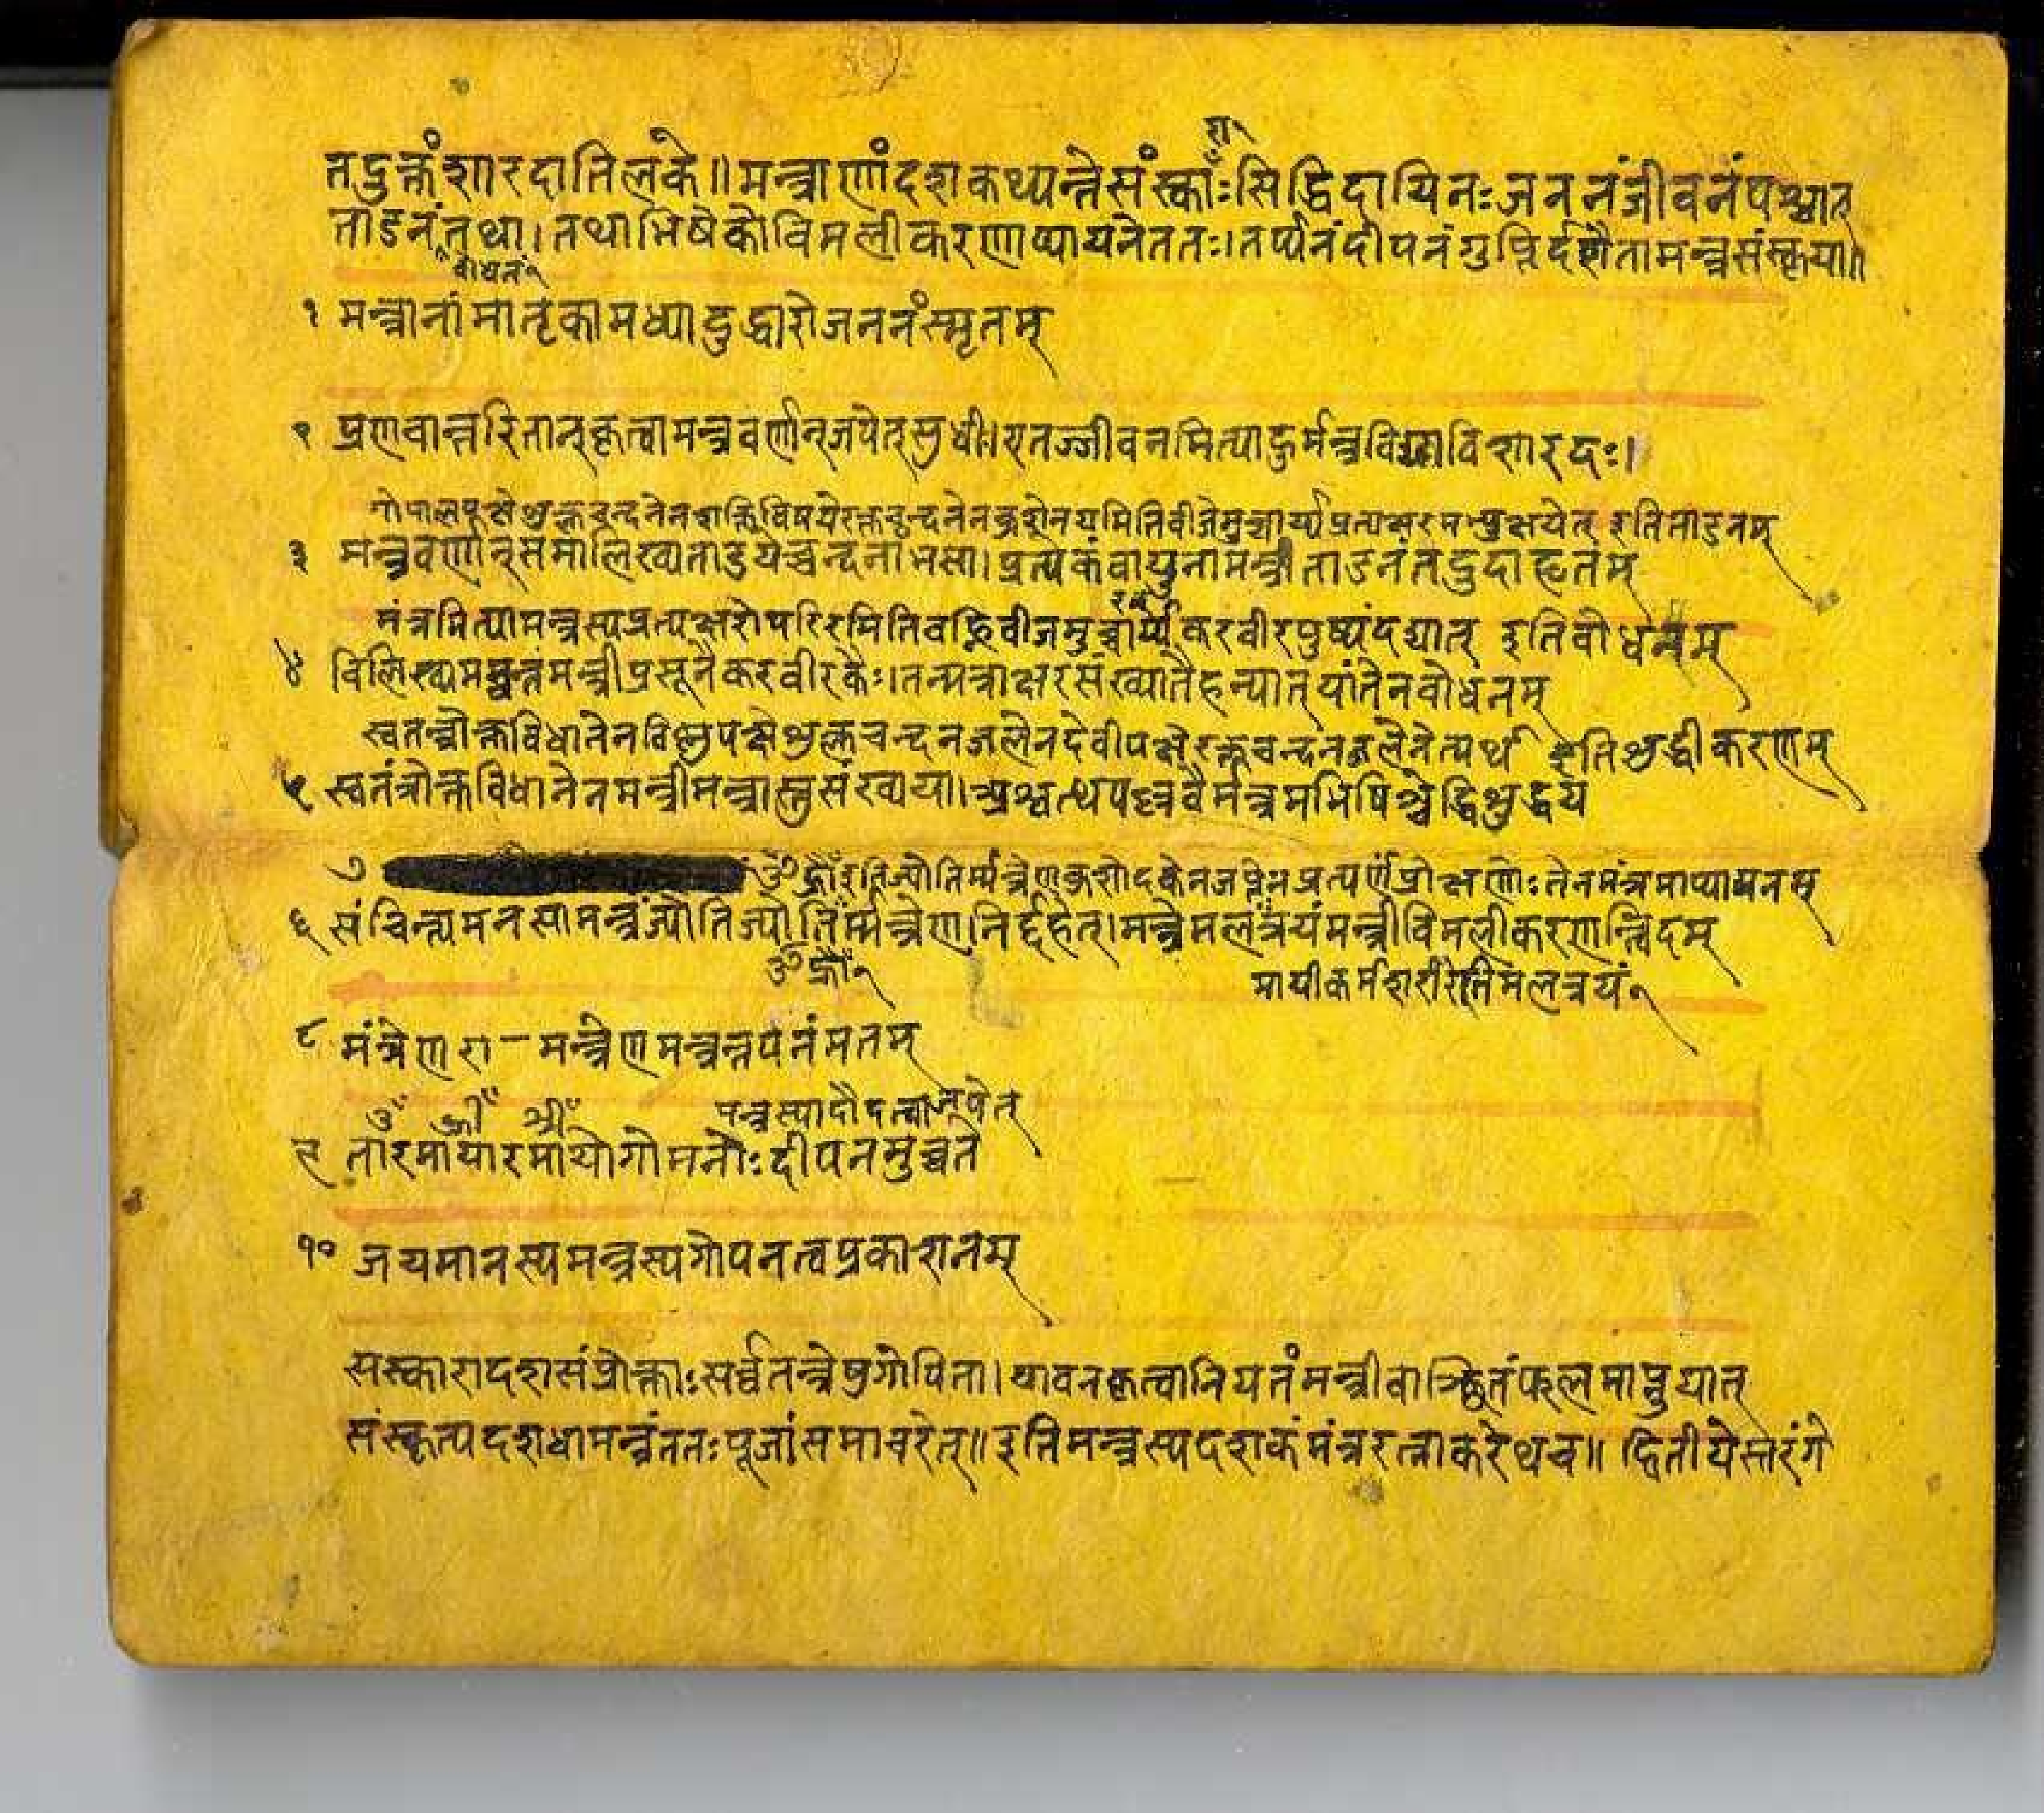 रा
तदुक्तंशारदातिलके॥मन्त्राणांदशकथ्यन्तेसंस्काः:सिद्धिदायिनःजननंजीवनंपश्चात्
ताडनंतथा।तथाभिषेकोविमलीकरणाप्यायनेततः।तर्प्पनंदीपनंगुप्तिर्दशैतामन्त्रसंस्कृया॥
वोधनं
१ मन्त्रानांमातृकामध्यादुद्धारोजननंस्मृतम्
२ प्रणवान्तरितान्कृत्वामन्त्रवर्णान्जपेत्सुधी।एतज्जीवनमित्याहुर्मन्त्रविद्याविशारदः।
गोपालपक्षेशुक्लचन्दनेनशक्तिविषयेरक्तचन्दनेनकुशेनयमितिवीजेमुच्चार्य्यप्रत्यक्षरमभ्युक्षयेत् इतिताडनम्
३ मन्त्रवर्णान्समालिख्यताडयेच्चन्दनाम्भसा।प्रत्यकंवायुनामन्त्रीताडनंतदुदाहृतम्
मंत्रमित्यामन्त्रस्यप्रत्यक्षरोपरिरमितिवह्निवीजमुच्चार्य्यकरवीरपुष्पंदद्यात् इतिवोधनम्
४ विलिख्यमन्त्रीप्रसूनैकरवीरकैः।तन्मत्राक्षरसंख्यातैहन्यात्यांतेनवोधनम्
स्वतन्त्रोक्तविधानेनविष्णुपक्षेशुक्लचन्दनजलेनदेवीपक्षेरक्तचन्दनजलेनेत्यर्थ इतिशुद्धीकरणम्
५ स्वतंत्रोक्तविधानेनमन्त्रीमन्त्रास्तुसंख्यया।अश्वत्थपल्लवैर्मन्त्रमभिषिञ्चेद्विशुद्धय
७ इतिज्योतिर्म्मन्त्रेणकुशोदकेनजप्तेनप्रत्यर्णंप्रोक्षणोःतेनमंत्रमाप्यायनम्
६ संचिन्त्यमनसामन्त्रंज्योतिज्योतिर्म्मन्त्रेणनिर्द्दहेत्।मन्त्रेमलंत्रयंमन्त्रीविमलीकरणन्त्विदम्
मायीकर्मशरीरेतिमलत्रयं
८ मंत्रेणरा-मन्त्रेणमन्त्रन्तर्पनंमतम्
ॐ ह्रीँ श्रीँ मन्त्रस्यादौदत्वाजपेत्
९ तारमायारमायोगोमनोःदीपनमुच्चते
१० जयमानस्यमन्त्रस्यगोपनत्वप्रकाशनम्
सस्कारादशसंप्रोक्ताःसर्व्वतन्त्रेषुगोपिता।यावनकृत्वानियतंमन्त्रीवाञ्छितंफलमाप्नुयात्
संस्कृत्यदशधामन्त्रंततःपूजांसमाचरेत्॥इतिमन्त्रस्यदशकंमंत्ररत्नाकरेथच॥ द्वितीयेस्तरंगे